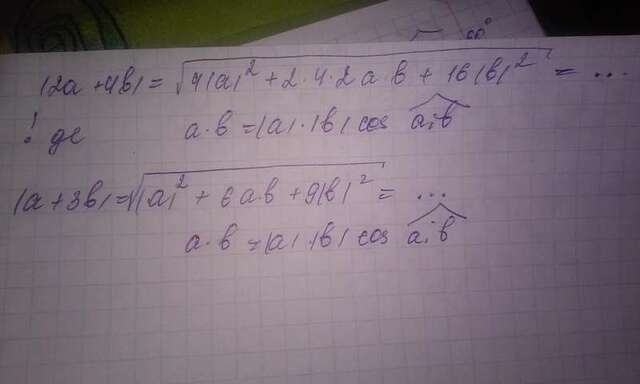 60°
|2a + 4b| = √(4|a|² + 2·4·2a·b + 16|b|²) = ...
! де a·b = |a|·|b| cos a;b
|a + 3b| = √(|a|² + 6a·b + 9|b|²) = ...
a·b = |a|·|b| cos a;b